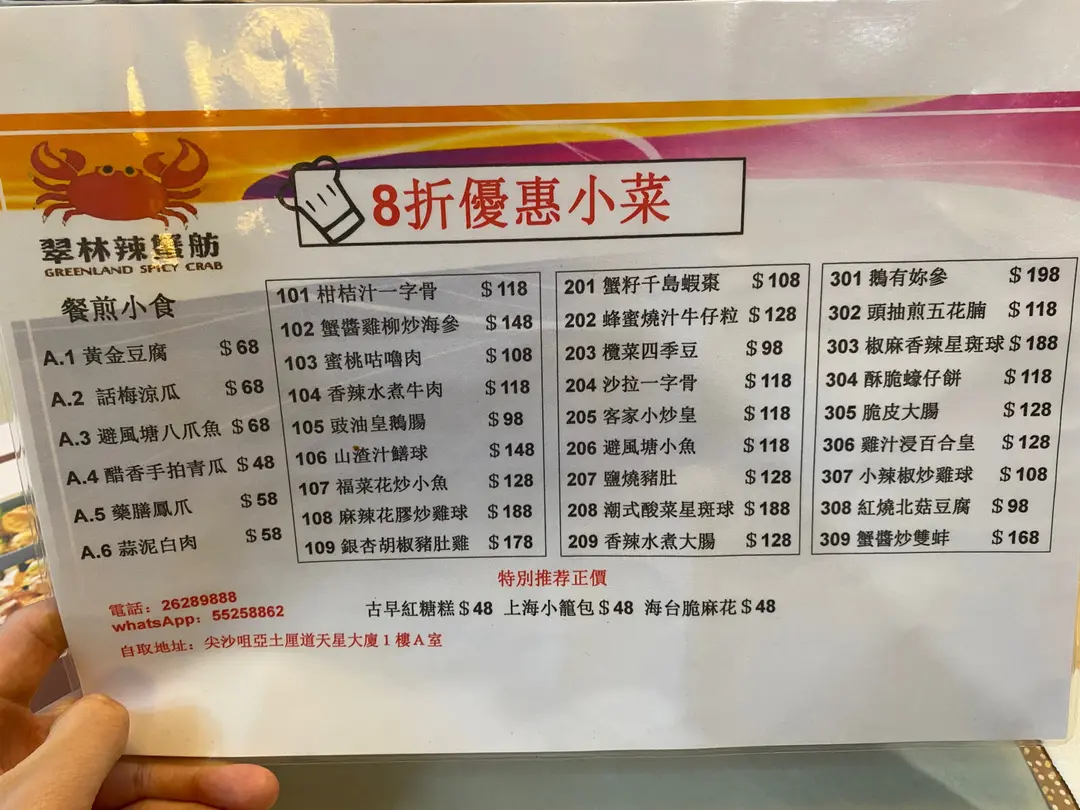 8折優惠小菜
翠林辣蟹舫
GREENLAND SPICY CRAB
餐煎小食
A.1 黃金豆腐 $68
A.2 話梅涼瓜 $68
A.3 避風塘八爪魚 $68
A.4 醋香手拍青瓜 $48
A.5 藥膳鳳爪 $58
A.6 蒜泥白肉 $58
101 柑桔汁一字骨 $118
102 蟹醬雞柳炒海參 $148
103 蜜桃咕嚕肉 $108
104 香辣水煮牛肉 $118
105 豉油皇鵝腸 $98
106 山渣汁鱔球 $148
107 福菜花炒小魚 $128
108 麻辣花膠炒雞球 $188
109 銀杏胡椒豬肚雞 $178
201 蟹籽千島蝦棗 $108
202 蜂蜜燒汁牛仔粒 $128
203 欖菜四季豆 $98
204 沙拉一字骨 $118
205 客家小炒皇 $118
206 避風塘小魚 $118
207 鹽燒豬肚 $128
208 潮式酸菜星斑球 $188
209 香辣水煮大腸 $128
301 鵝有妳參 $198
302 頭抽煎五花腩 $118
303 椒麻香辣星斑球 $188
304 酥脆蠔仔餅 $118
305 脆皮大腸 $128
306 雞汁浸百合皇 $128
307 小辣椒炒雞球 $108
308 紅燒北菇豆腐 $98
309 蟹醬炒雙蚌 $168
特別推荐正價
古早紅糖糕$48 上海小籠包$48 海台脆麻花$48
電話：26289888
whatsApp：55258862
自取地址：尖沙咀亞士厘道天星大廈1樓A室